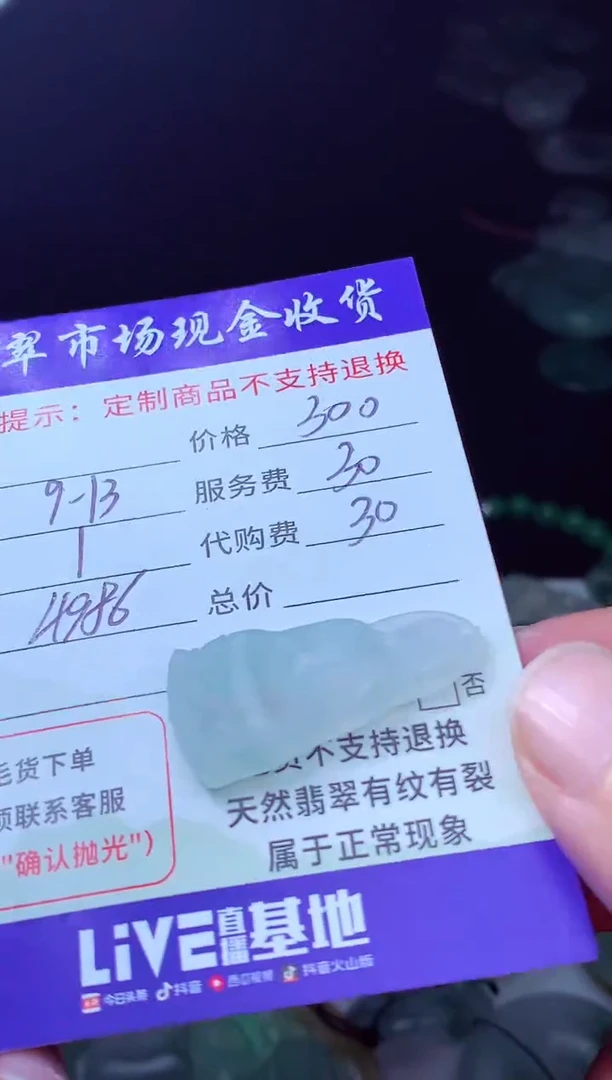 翠市场现金收货
提示：定制商品不支持退换
价格 300
9-13 服务费 30
1 代购费 30
4986 总价
否
不支持退换
毛货下单
天然翡翠有纹有裂
须联系客服
属于正常现象
"确认抛光")
LiVE直播基地
今日头条 抖音 西瓜视频 抖音火山版